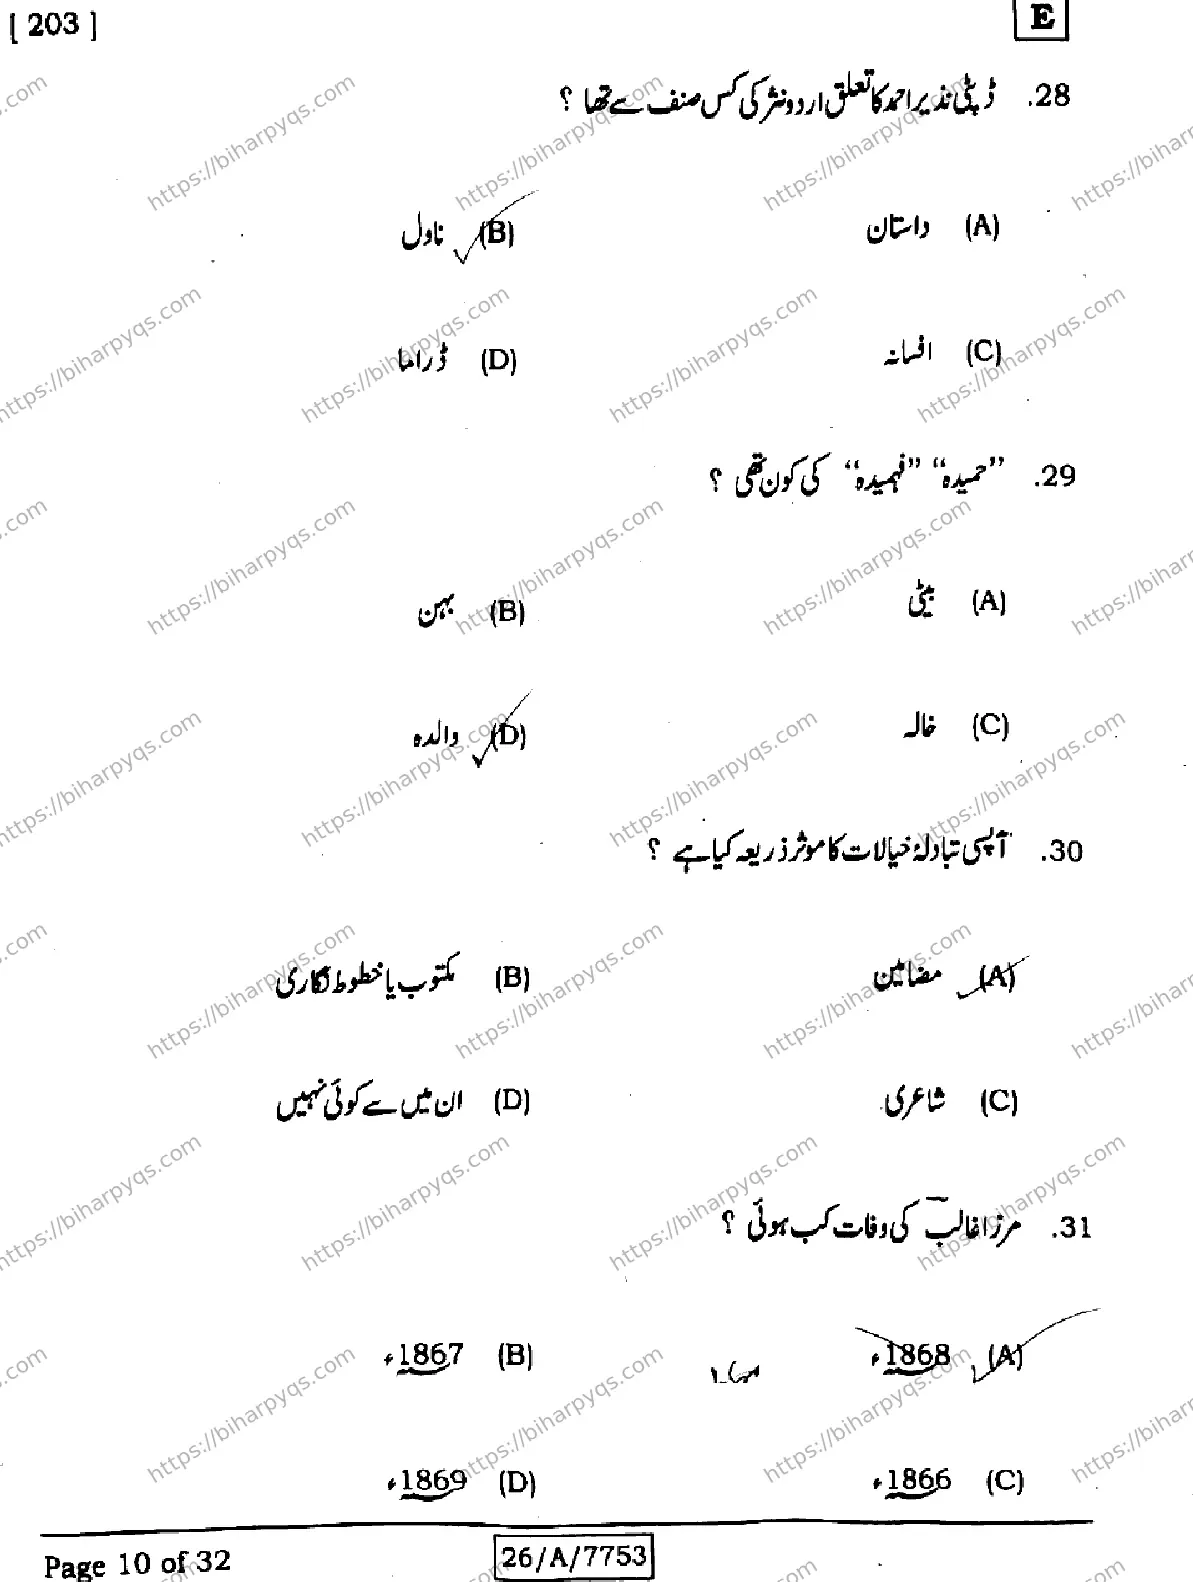 [ 203 ]
E
28. ڈپٹی نذیر احمد کا تعلق اردو نثر کی کس صنف سے تھا ؟
(A) داستان (B) ناول
(C) افسانہ (D) ڈراما
29. ”حمیدہ“ ”فہمیدہ“ کی کون تھی ؟
(A) بیٹی (B) بہن
(C) خالہ (D) والدہ
30. آپسی تبادلۂ خیالات کا موثر ذریعہ کیا ہے ؟
(A) مضامین (B) مکتوب یا خطوط نگاری
(C) شاعری (D) ان میں سے کوئی نہیں
31. مرزا غالب کی وفات کب ہوئی ؟
(A) 1868ء (B) 1867ء
(C) 1866ء (D) 1869ء
Page 10 of 32
26/A/7753
https://biharpyqs.com